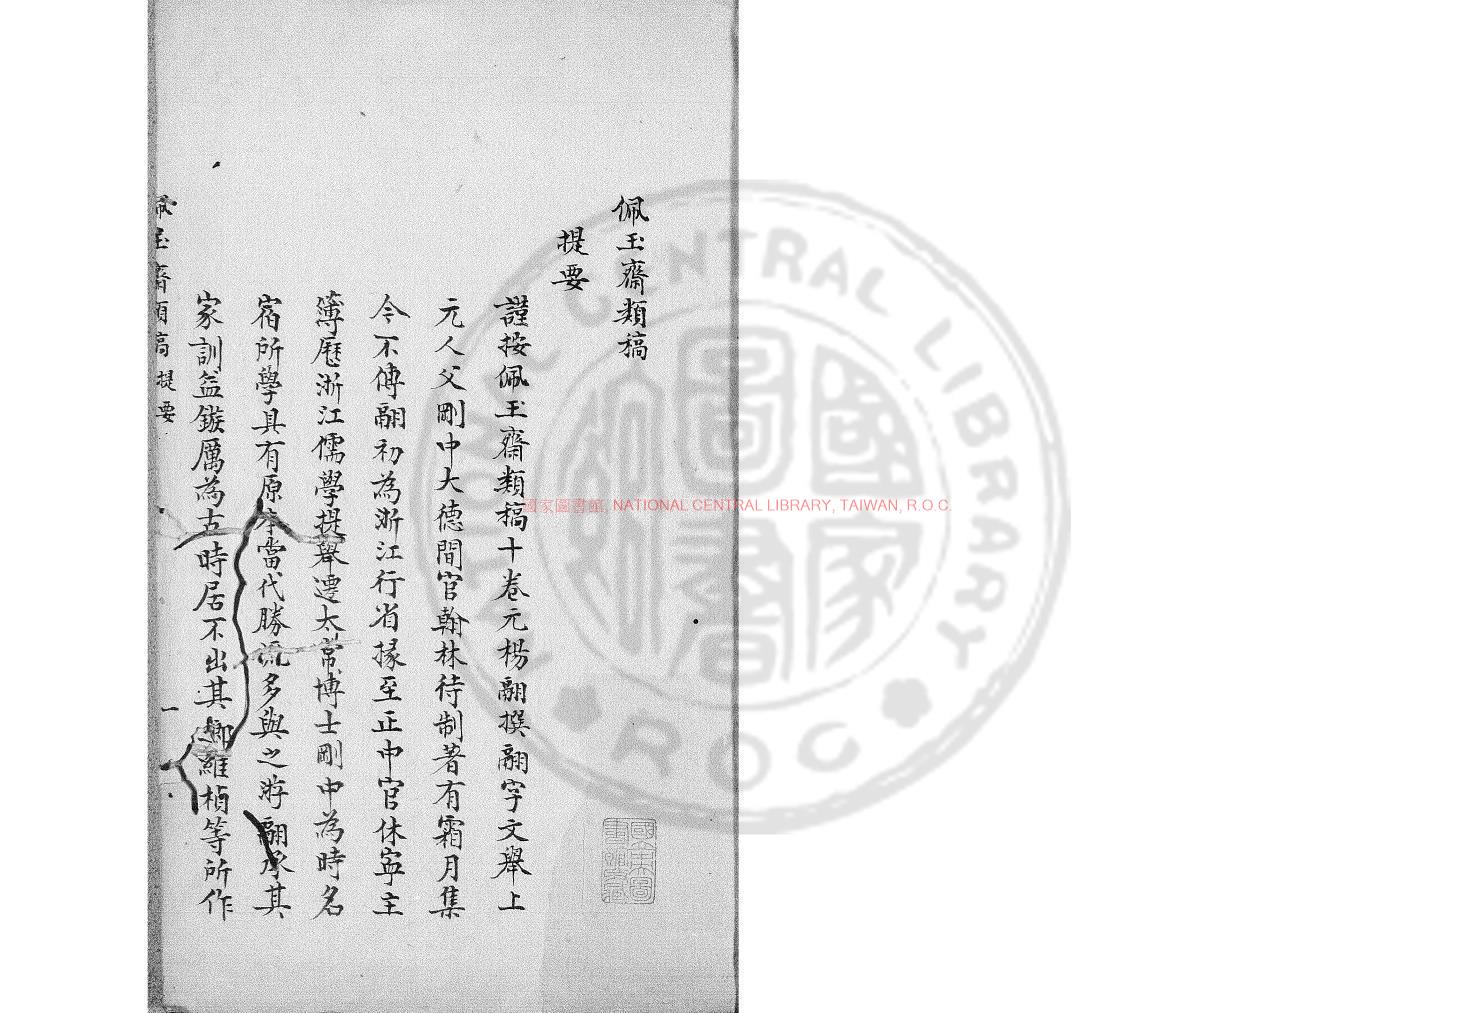 佩玉齋類稿
提要
謹按佩玉齋類稿十卷元楊翮撰翮字文舉上
元人父剛中大德間官翰林待制著有霜月集
今不傳翮初為浙江行省掾至正中官休寧主
簿歷浙江儒學提舉遷太常博士剛中為時名
宿所學具有原本當代勝流多與之游翮承其
家訓益鏃厲為古時居不出其鄉維楨等所作
佩玉齋類稿 提要
一
國家圖書館, NATIONAL CENTRAL LIBRARY, TAIWAN, R.O.C.
NATIONAL CENTRAL LIBRARY
ROC